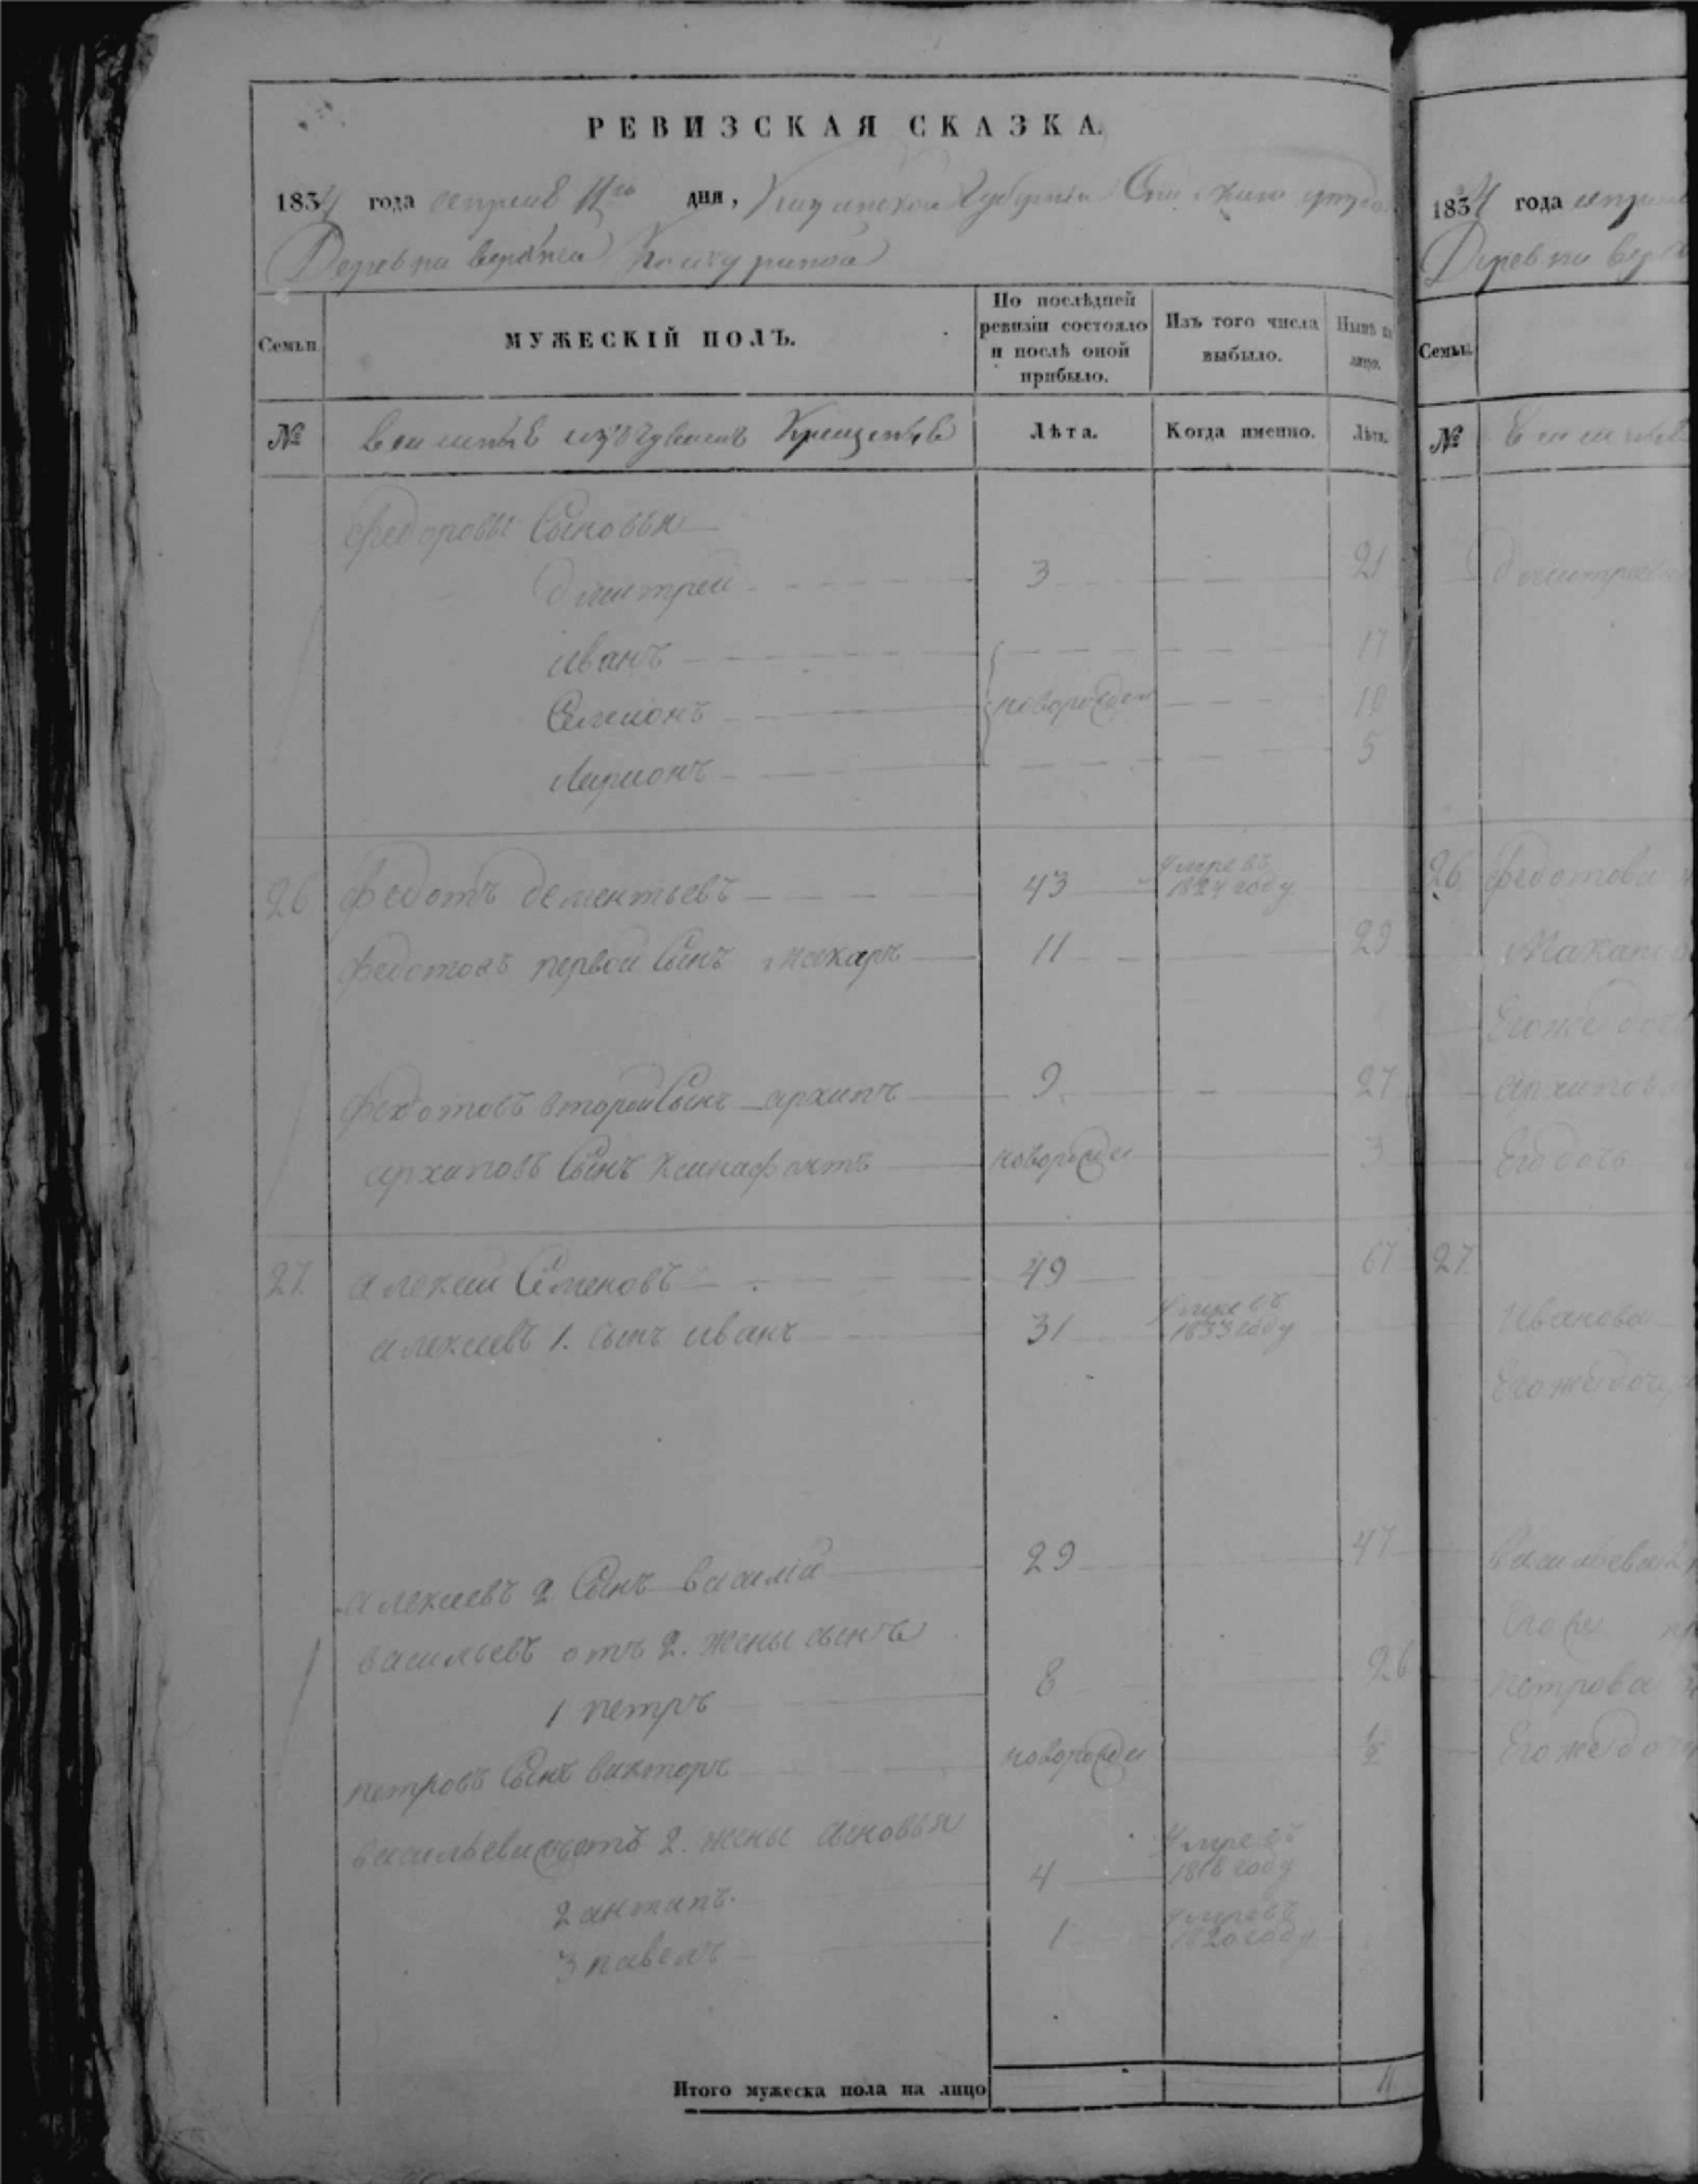 РЕВИЗСКАЯ СКАЗКА.
1834 года апреля 11го дня, Казанской Губернии Спаского уезда
Деревни верхней
Семьи. МУЖЕСКІЙ ПОЛЪ. По послѣдней ревизіи состояло и послѣ оной прибыло. Изъ того числа выбыло. Нынѣ на лицо.
№ изъ чувашъ Крещеныхъ Лѣта. Когда именно. Лѣта.
Федоровы Сыновья
Дмитреи 3 21
иванъ 17
Семионъ новорожден 10
Ларионъ 5
26 Федотъ дементьевъ 43 умре въ 1824 году
Федотовъ первой Сынъ макаръ 11 29
Федотовъ второй Сынъ архипъ 9 27
архиповъ Сынъ новорожден 3
27 алексей Семеновъ 49 67
алексеевъ 1. сынъ иванъ 31 умре въ 1833 году
алексеевъ 2 Сынъ василій 29 47
васильевъ отъ 2. жены сынъ
1 петръ 8 26
петровъ Сынъ викторъ новорожден ½
отъ 2. жены сыновья
2 антипъ 4 умре въ 1816 году
3 павелъ 1 умре въ 1820 году
Итого мужеска пола на лицо 11
1834 года
Деревни
Семьи.
№
26 Федотова
Макаро
Егоже доч
архипова
Его дочь
27
Иванова
Егоже доче
Васильева 2
петрова
Егоже до